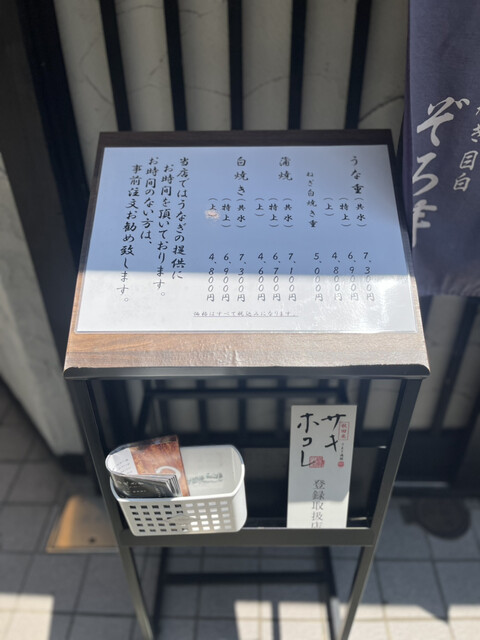 うな重(共水) 7,300円
(特上) 6,900円
(上) 4,800円
ねぎ白焼き重 5,000円
蒲焼 (共水) 7,100円
(特上) 6,700円
(上) 4,600円
白焼き(共水) 7,300円
(特上) 6,900円
(上) 4,800円
当店ではうなぎの提供に
お時間を頂いております。
お時間のない方は、
事前注文お勧め致します。
価格はすべて税込みになります。
目白
ぞろ
サキ
ホコレ
登録取扱店